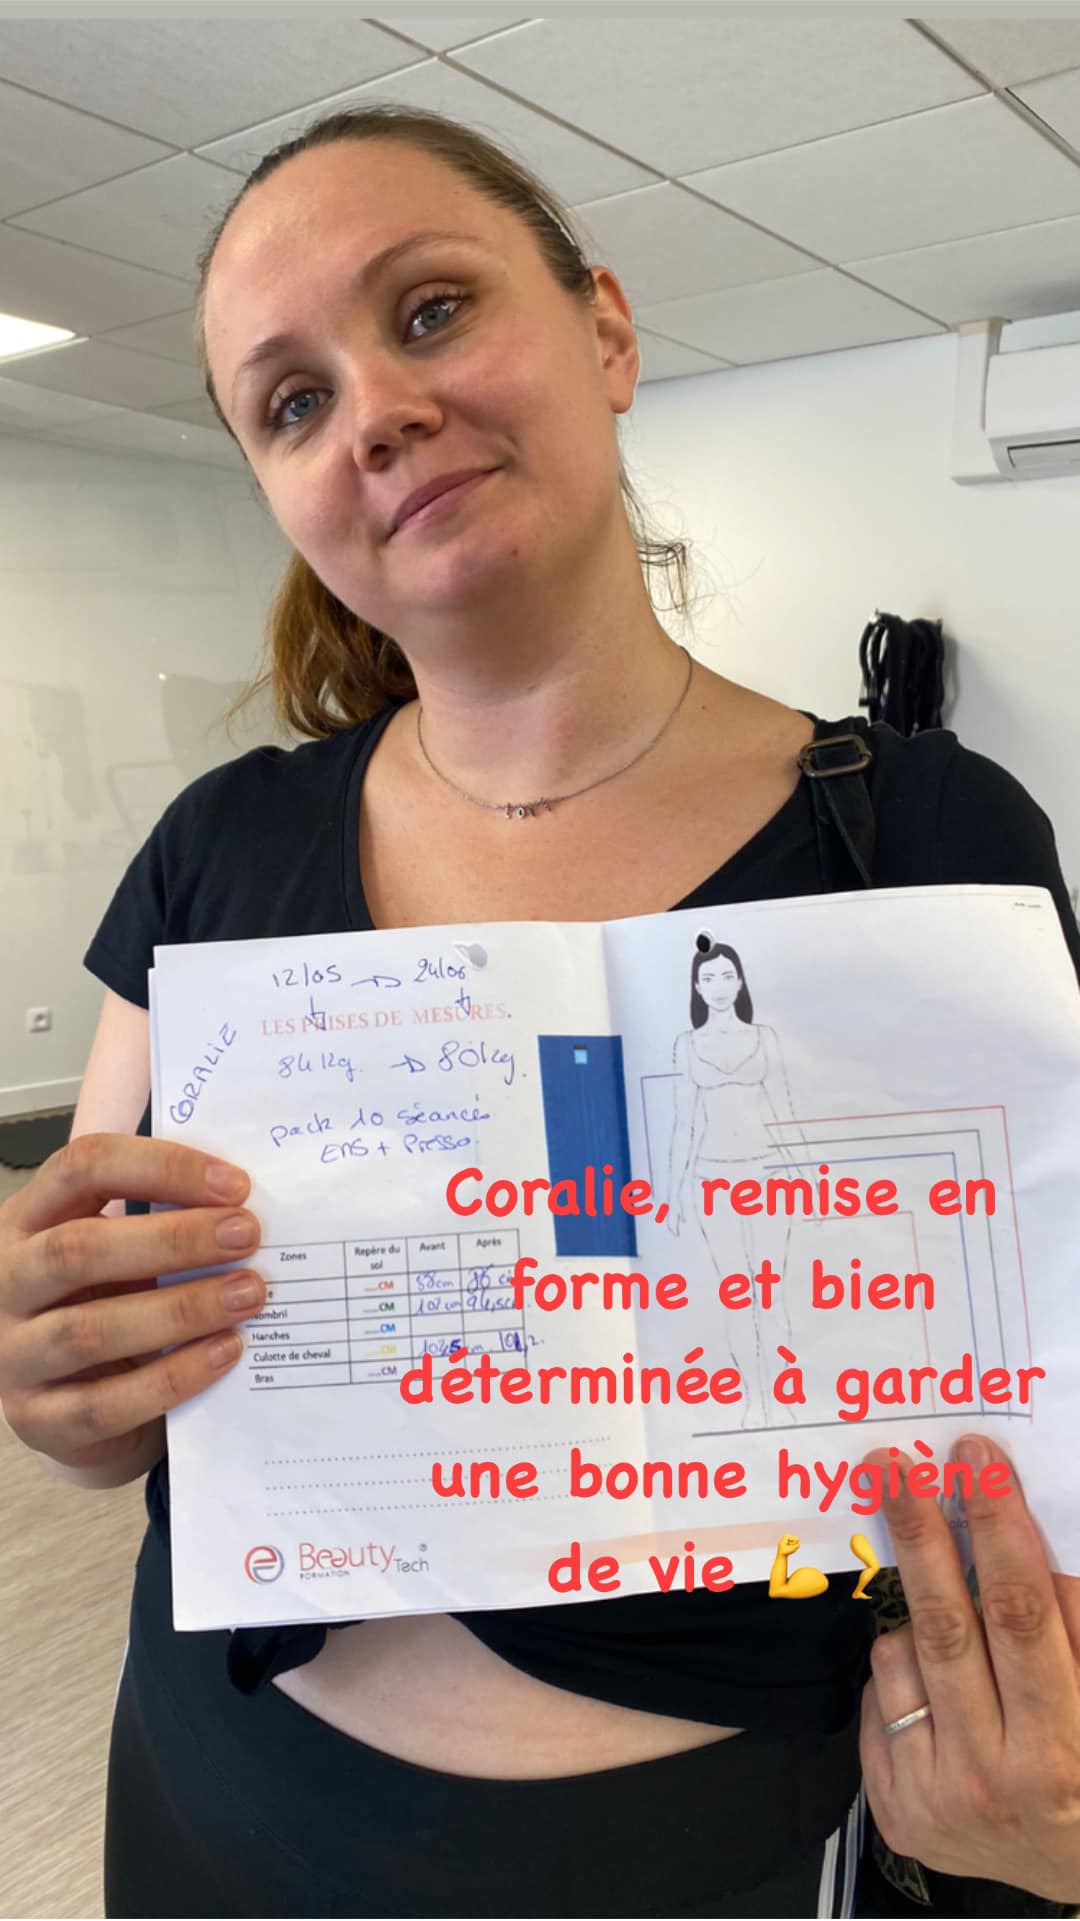 12/05 → 24/06
LES PRISES DE MESURES.
CORALIE
84 kg. → 80kg.
pack 10 séances
EMS + Presso.
Zones Repère du sol Avant Après
....CM 88cm 86 c
Nombril ....CM 102 cm 94,5c
Hanches ....CM
Culotte de cheval ....CM
Bras ....CM
Beauty Tech®
FORMATION
Coralie, remise en
forme et bien
déterminée à garder
une bonne hygiène
de vie 💪🦵